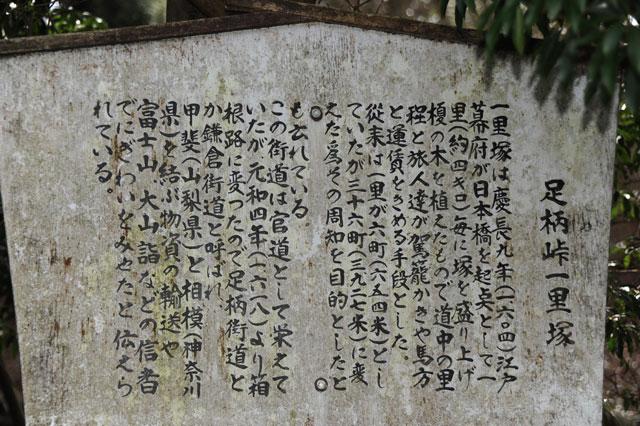 足柄峠一里塚
一里塚は慶長九年(一六〇四)江戸
幕府が日本橋を起点として一
里(約四キロ)毎に塚を盛り上げ
榎の木を植えたもので道中の里
程と旅人達が駕籠かきや馬方
と運賃をきめる手段とした。
従来は一里が六町(六五四米)とし
ていたが三十六町(三九二七米)に変
えた為その周知を目的としたと
も云れている。
この街道は官道として栄えて
いたが元和四年(一六一八)より箱
根路に変ったので足柄街道と
か鎌倉街道と呼ばれ
甲斐(山梨県)と相模(神奈川
県)を結ぶ物資の輸送や
富士山 大山詣などの信者
でにぎわいをみせたと伝えら
れている。